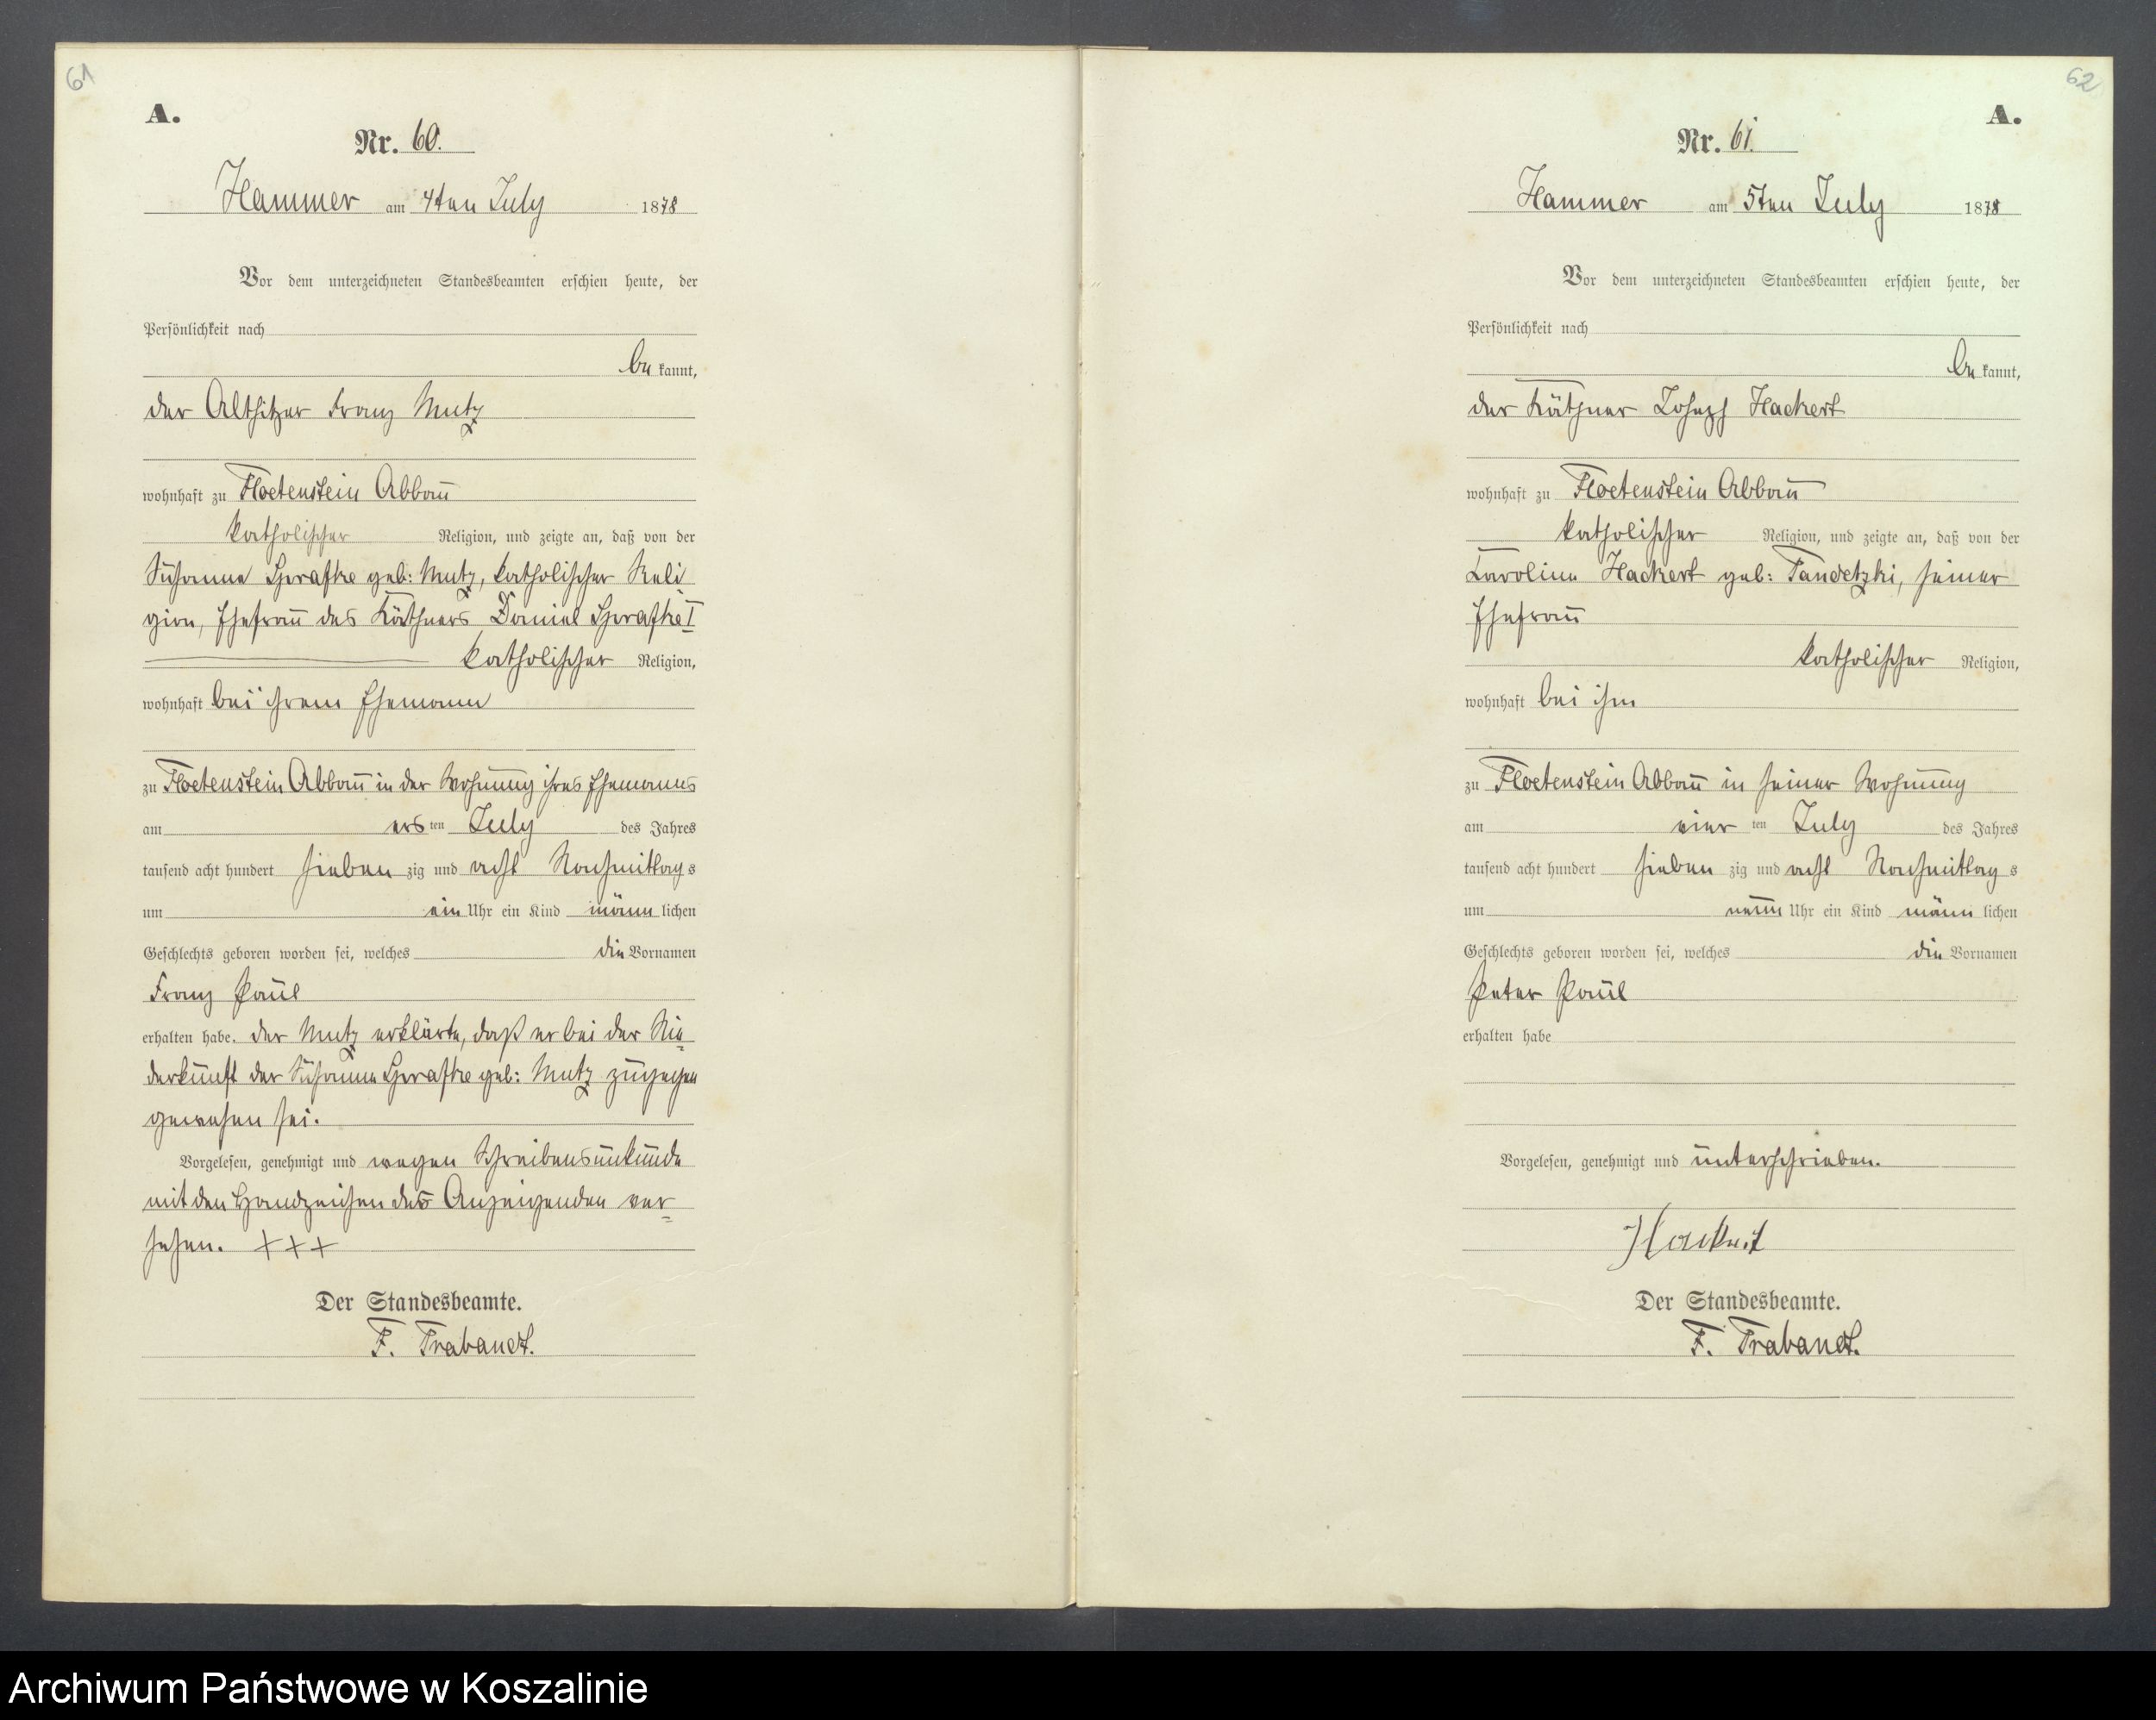 61
A.
Nr. 60.
Hammer am 4ten July 1878
Vor dem unterzeichneten Standesbeamten erschien heute, der
Persönlichkeit nach
be kannt,
der Altsitzer Franz Mutz
wohnhaft zu Floetenstein Abbau
katholischer Religion, und zeigte an, daß von der
Susanna geb: Mutz, katholischer Reli
gion, Ehefrau des Käthners Daniel I
katholischer Religion,
wohnhaft bei ihrem Ehemann
zu Floetenstein Abbau in der Wohnung ihres Ehemannes
am ers ten July des Jahres
tausend acht hundert sieben zig und acht Nachmittag s
um ein Uhr ein Kind männ lichen
Geschlechts geboren worden sei, welches die Vornamen
Franz Paul
erhalten habe. der Mutz erklärte, daß er bei der Nie=
derkunft der Susanna geb: Mutz zugegen
gewesen sei.
Vorgelesen, genehmigt und wegen Schreibensunkunde
mit den Handzeichen des Anzeigenden ver=
sehen. +++
Der Standesbeamte.
F. Trabandt.
62
A.
Nr. 61.
Hammer am 5ten July 1878
Vor dem unterzeichneten Standesbeamten erschien heute, der
Persönlichkeit nach
be kannt,
der Käthner Joseph Hackert
wohnhaft zu Floetenstein Abbau
katholischer Religion, und zeigte an, daß von der
Caroline Hackert geb: Pandetzki, seiner
Ehefrau
katholischer Religion,
wohnhaft bei ihm
zu Floetenstein Abbau in seiner Wohnung
am vier ten July des Jahres
tausend acht hundert sieben zig und acht Nachmittag s
um neun Uhr ein Kind männ lichen
Geschlechts geboren worden sei, welches die Vornamen
Peter Paul
erhalten habe
Vorgelesen, genehmigt und unterschrieben.
Hackert
Der Standesbeamte.
F. Trabandt.
Archiwum Państwowe w Koszalinie